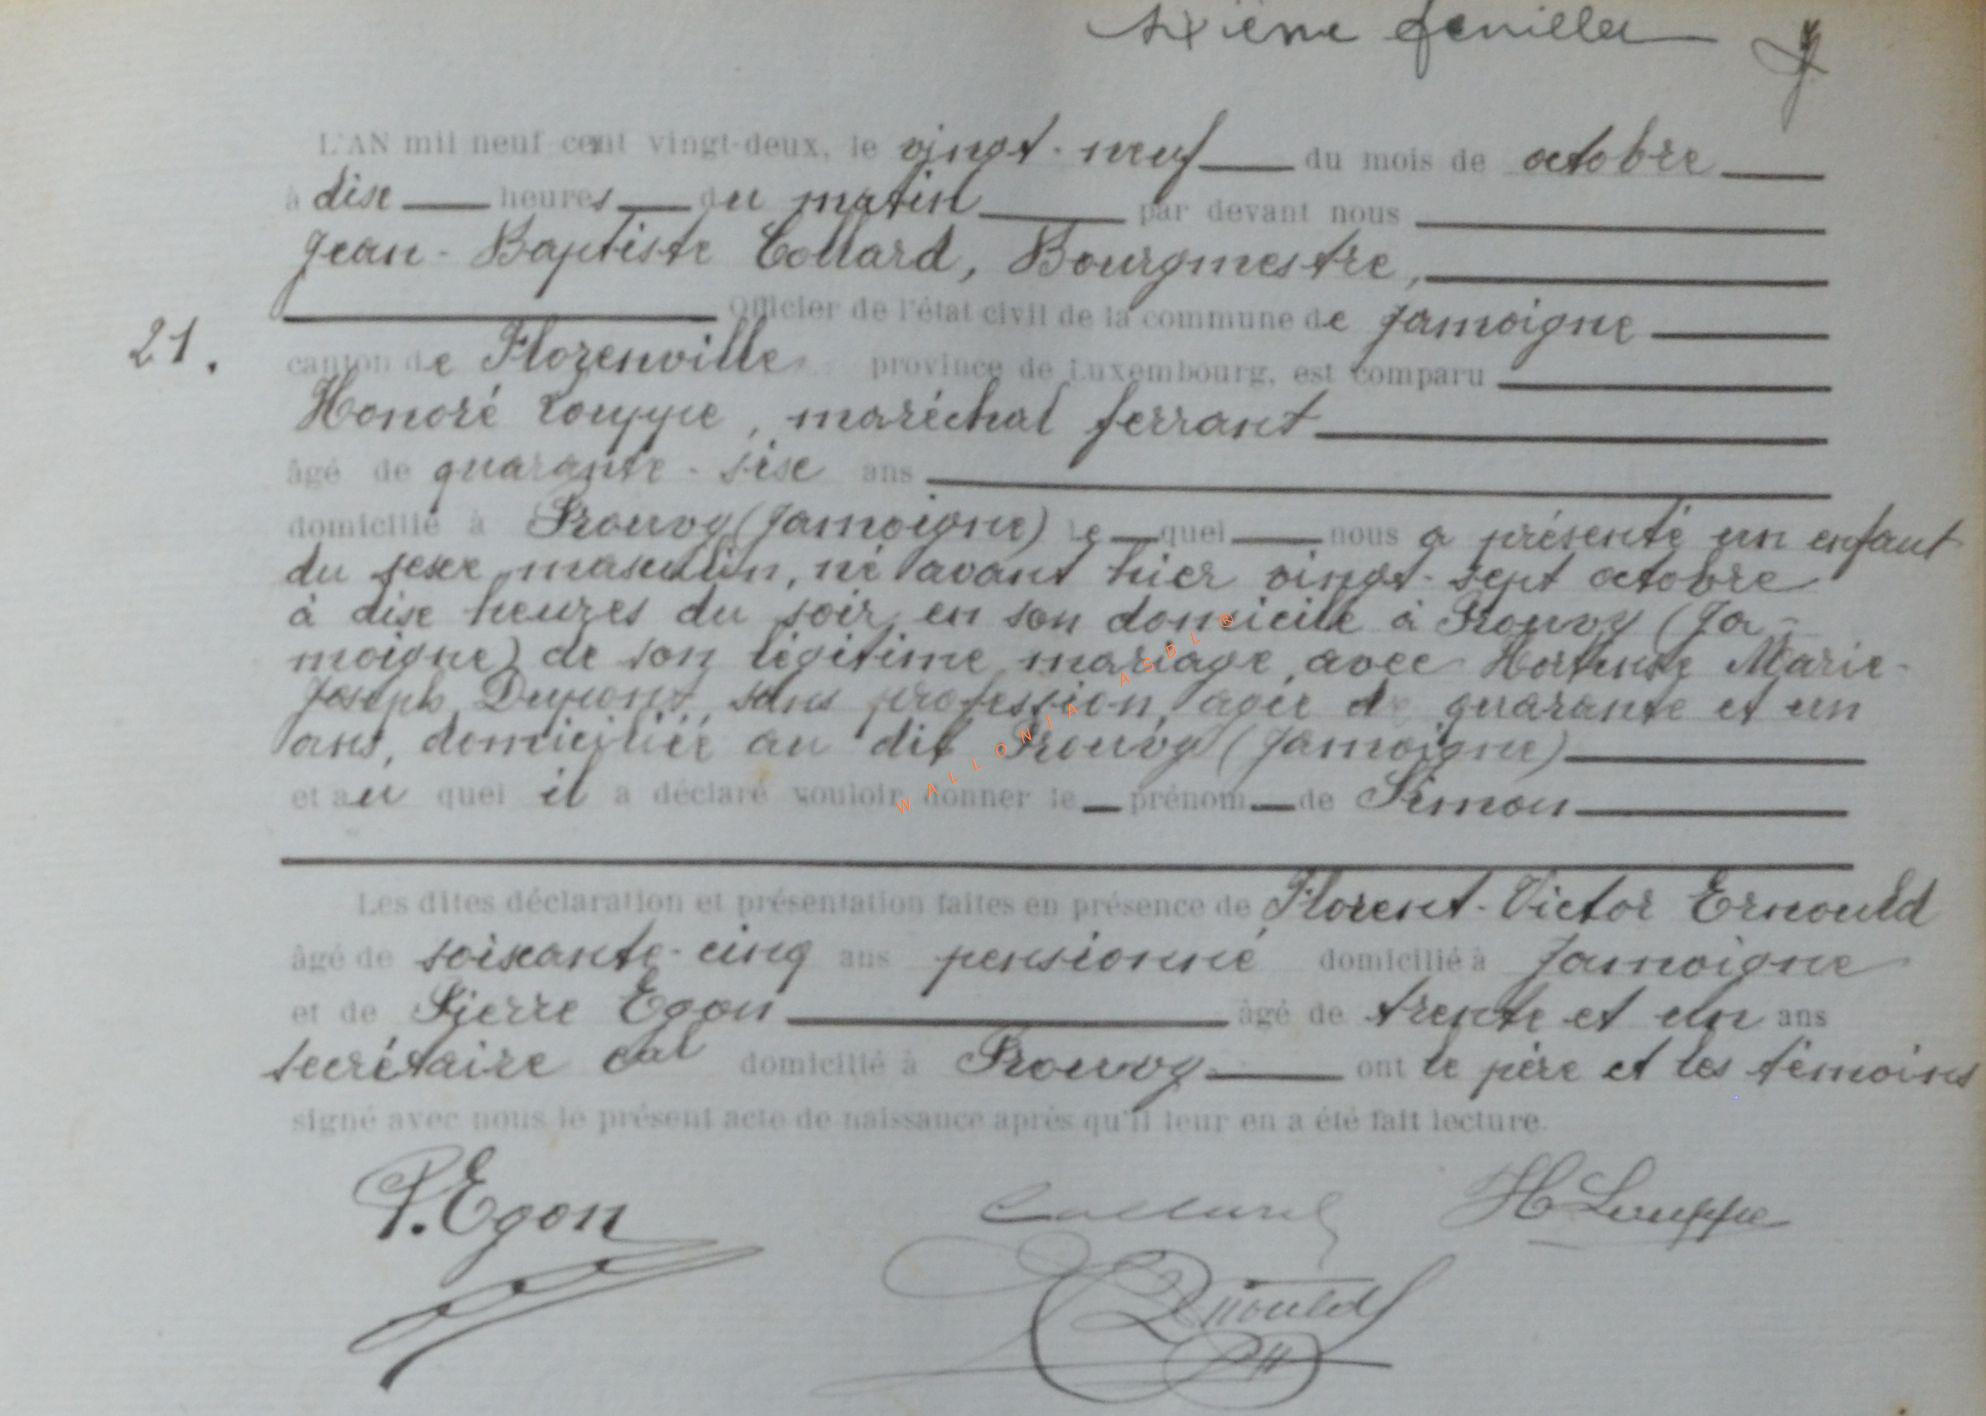 sixième feuillet
L'AN mil neuf cent vingt-deux, le vingt-neuf du mois de octobre
à dix heures du matin par devant nous
Jean-Baptiste Collard, Bourgmestre,
Officier de l'état civil de la commune de Jamoigne
21. canton de Florenville province de Luxembourg, est comparu
Honoré Louppe, maréchal ferrant
âgé de quarante-six ans
domicilié à Prouvy (Jamoigne) lequel nous a présenté un enfant
du sexe masculin, né avant hier vingt-sept octobre
à dix heures du soir en son domicile à Prouvy (Ja-
moigne) de son légitime mariage avec Hortense Marie-
Joseph Dupont, sans profession, âgée de quarante et un
ans, domiciliée au dit Prouvy (Jamoigne)
et au quel il a déclaré vouloir donner le prénom de Simon
Les dites déclaration et présentation faites en présence de Florent-Victor Ernould
âgé de soixante-cinq ans pensionné domicilié à Jamoigne
et de Pierre Egon âgé de trente et un ans
secrétaire cal domicilié à Prouvy ont le père et les témoins
signé avec nous le présent acte de naissance après qu'il leur en a été fait lecture.
P. Egon Collard H Louppe
Ernould
WALLONIA ASBL ®